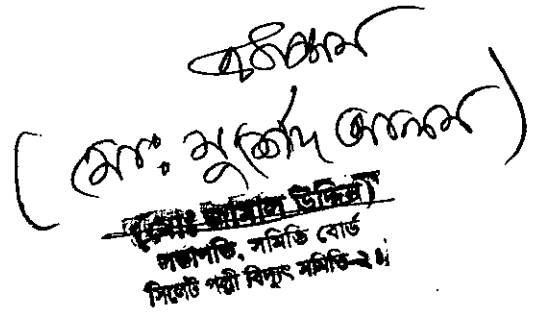 (মোঃ মুর্শেদ আলম)
(মোঃ জামাল উদ্দিন)
সভাপতি, সমিতি বোর্ড
সিলেট পল্লী বিদ্যুৎ সমিতি-২।